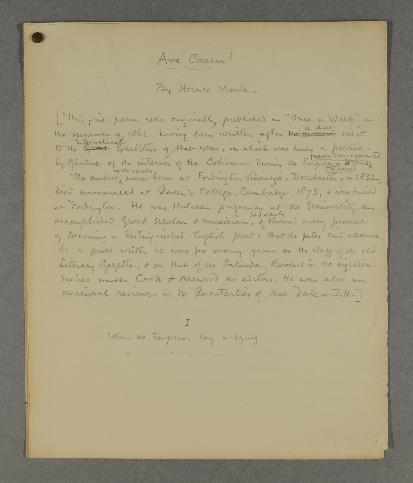 Ave Caesar!
By Horace Moule.
[This fine poem was originally published in "Once a Week" in
the summer of 1862, having been written after a short visit
to the International Exhibition of that year, in which was hung a picture
by Gérôme of the interior of the Coliseum during the
The author of the verses was born at Fordington Vicarage, Dorchester, in 1832.
died unmarried at Queen's College, Cambridge, 1873, & was buried
at Fordington. He was Hulsean prizeman at the University, an
accomplished Greek scholar & musician, & had early promise
of becoming a distinguished English poet. But the fates said otherwise.
As a prose writer he was for many years on the staff of the old
Literary Gazette, & on that of the Saturday Review in the eighteen-
sixties under Cook & Harwood as editors. He was also an
occasional reviewer in the Quarterlies of that date. T.H.]
I
When an Emperor lay a-dying